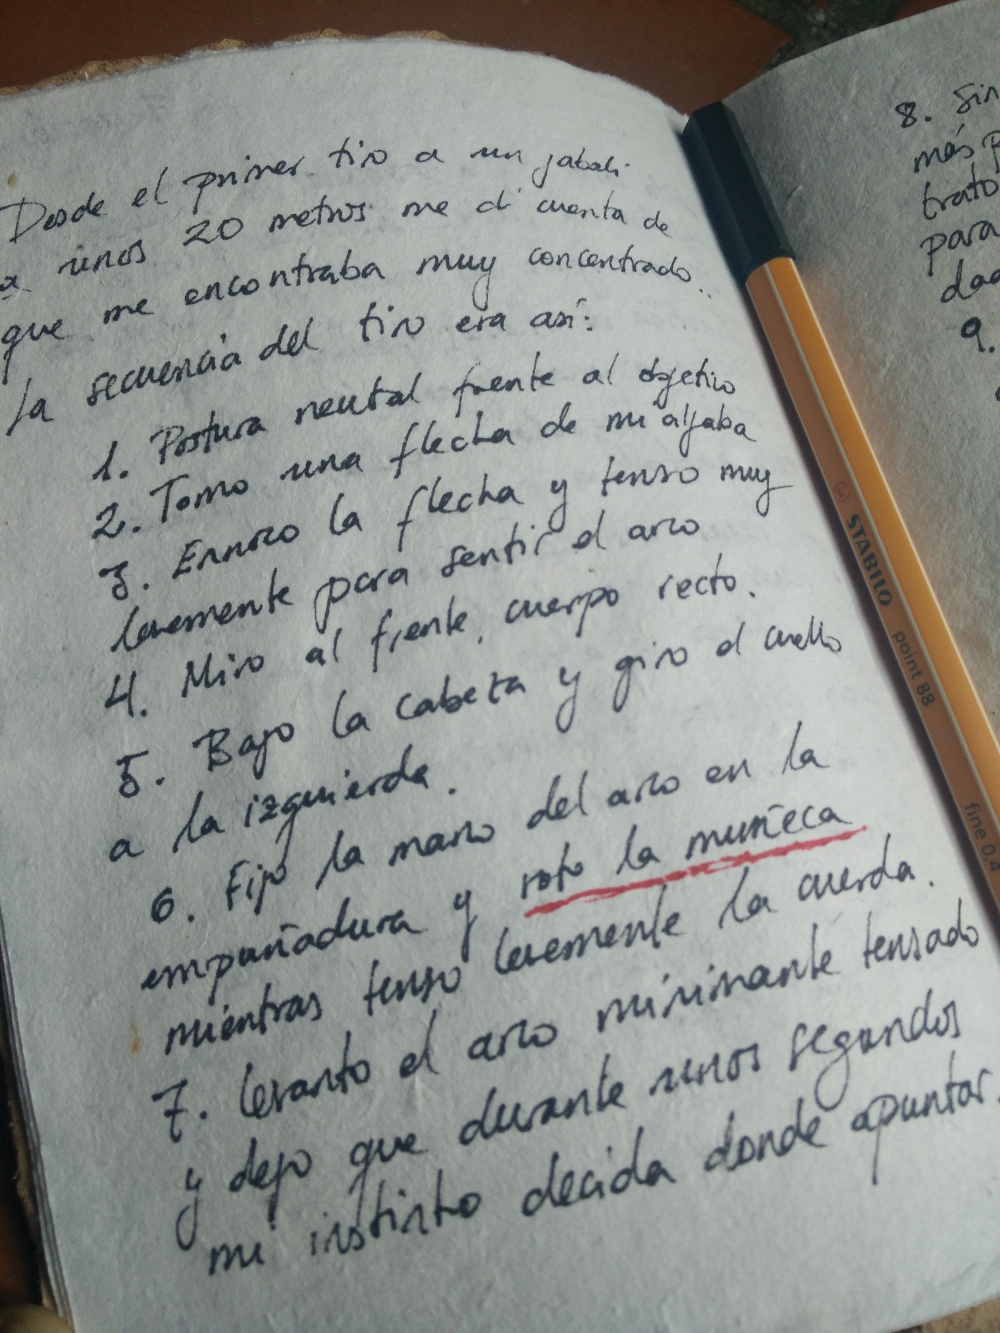 Desde el primer tiro a un jabali
a unos 20 metros me di cuenta de
que me encontraba muy concentrado..
La secuencia del tiro era así:
1. Postura neutral frente al objetivo
2. Tomo una flecha de mi aljaba
3. Enroco la flecha y tenso muy
levemente para sentir el arco
4. Miro al frente, cuerpo recto.
5. Bajo la cabeza y giro el cuello
a la izquierda.
6. Fijo la mano del arco en la
empuñadura y roto la muñeca
mientras tenso levemente la cuerda.
7. Levanto el arco minimante tensado
y dejo que durante unos segundos
mi instinto decida donde apuntar.
8. Sin
más
trato
para
9.
STABILO point 88 fine 0.4